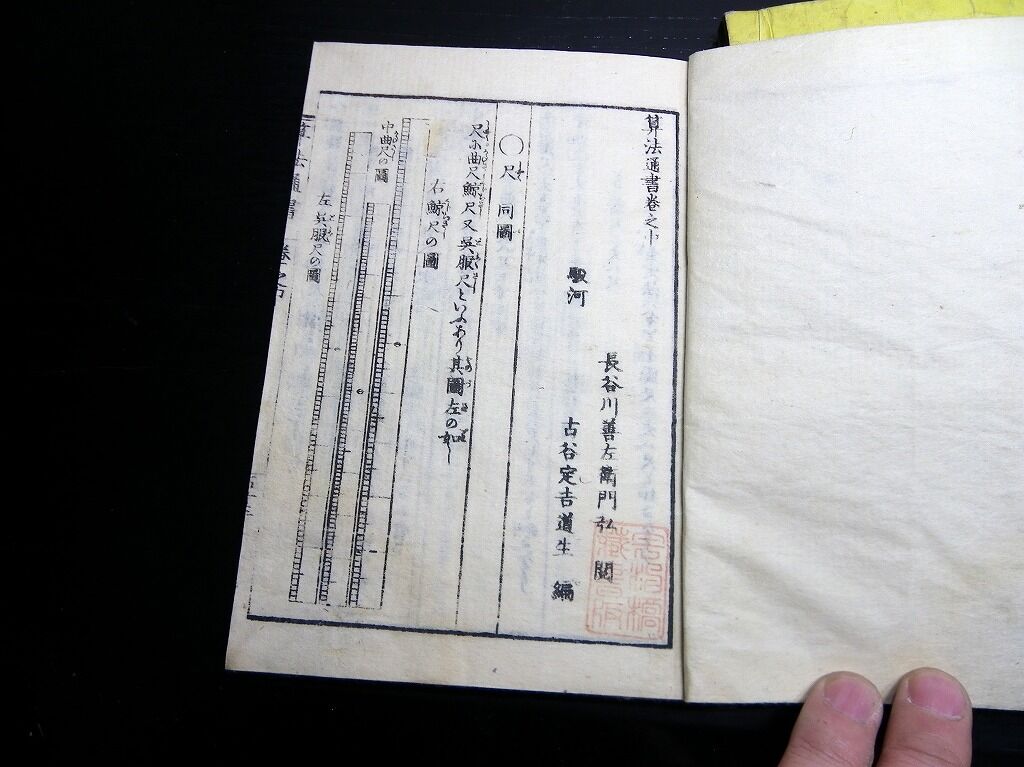 算法通書巻之中
長谷川善左衛門弘 閲
駿河 古谷定吉道生 編
◯尺同圖
尺に曲尺鯨尺又呉服尺といふあり其圖左の如し
右鯨尺の圖
中曲尺の圖
左呉服尺の圖
算法通書 巻之中